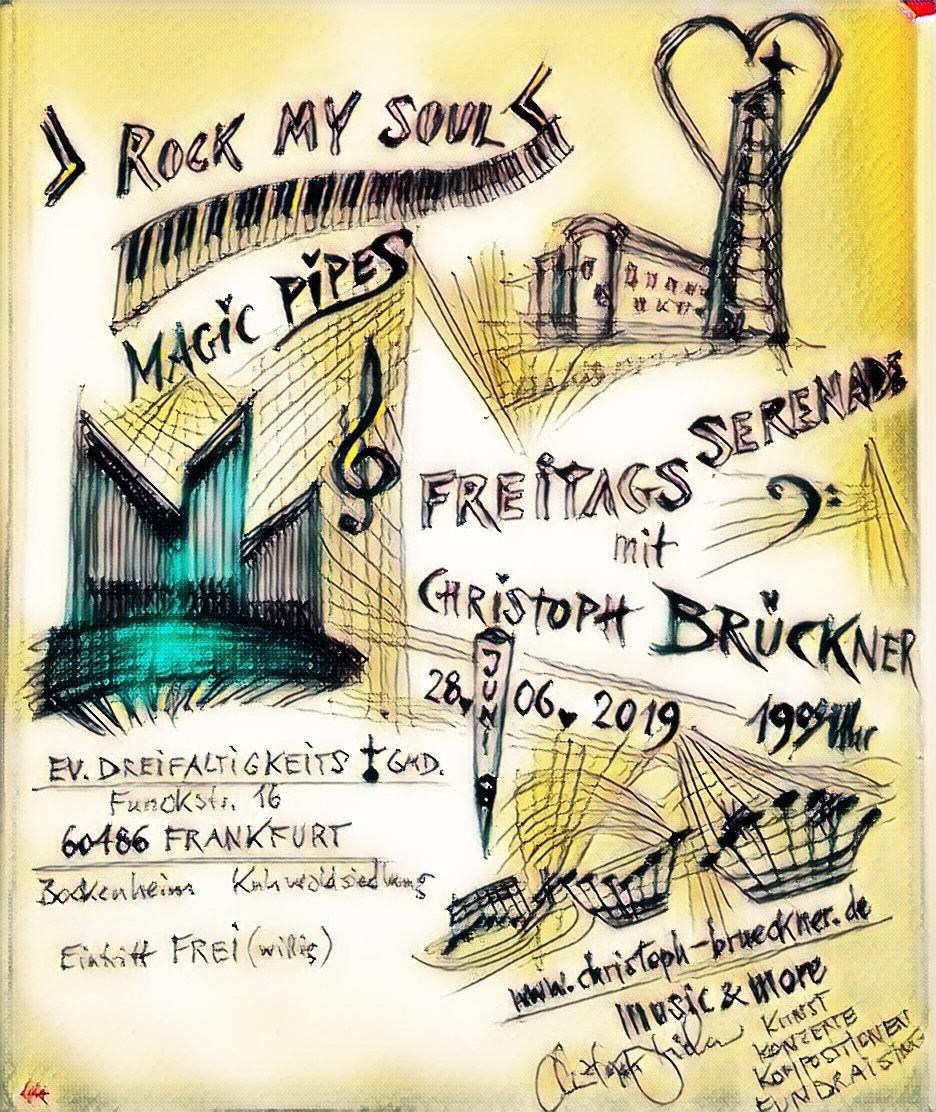 ROCK MY SOUL
MAGIC PIPES
FREITAGS SERENADE
mit
CHRISTOPH BRÜCKNER
28. JUNI 06. 2019 19 Uhr
EV. DREIFALTIGKEITS GMD.
Funckstr. 16
60486 FRANKFURT
Bockenheim Kuhwaldsiedlung
Eintritt FREI (willig)
www.christoph-brueckner.de
music & more
KUNST
KONZERTE
KOMPOSITIONEN
FUNDRAISING